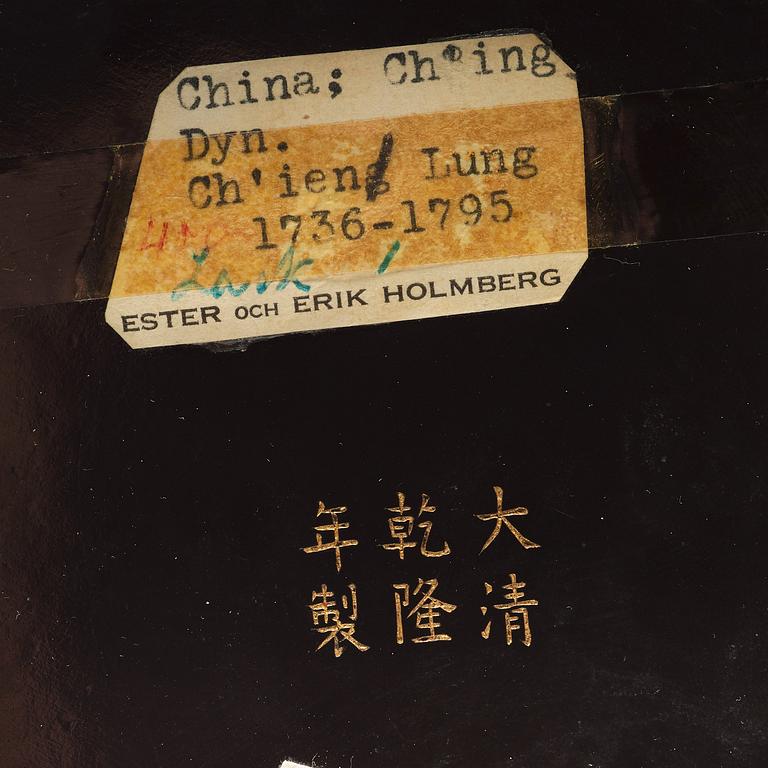 China; Ch'ing
Dyn.
Ch'ien Lung
1736-1795
ESTER OCH ERIK HOLMBERG
大清
乾隆
年製